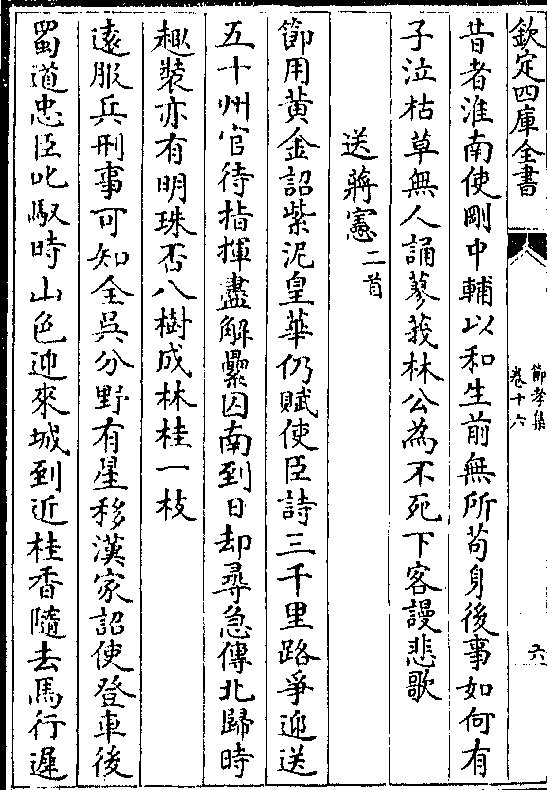 欽定四庫全書
節孝集
卷十六
六
昔者淮南使剛中輔以和生前無所茍身後事如何有
子泣枯草無人誦蓼莪林公為不死下客謾悲歌
送蔣憲二首
節用黃金詔紫泥皇華仍賦使臣詩三千里路爭迎送
五十州官待指揮盡解纍囚南到日却尋急傳北歸時
趣裝亦有明珠否八樹成林桂一枝
逺服兵刑事可知全吳分野有星移漢家詔使登車後
蜀道忠臣叱馭時山色迎來城到近桂香隨去馬行遲